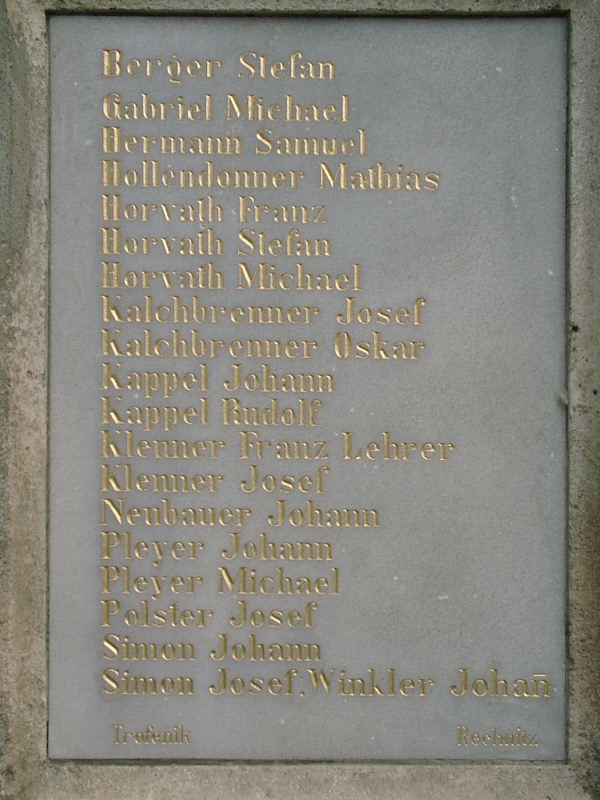 Berger Stefan
Gabriel Michael
Hermann Samuel
Hollendonner Mathias
Horvath Franz
Horvath Stefan
Horvath Michael
Kalchbrenner Josef
Kalchbrenner Oskar
Kappel Johann
Kappel Rudolf
Klenner Franz Lehrer
Klenner Josef
Neubauer Johann
Pleyer Johann
Pleyer Michael
Polster Josef
Simon Johann
Simon Josef; Winkler Johan̄
Trofenik Rechnitz